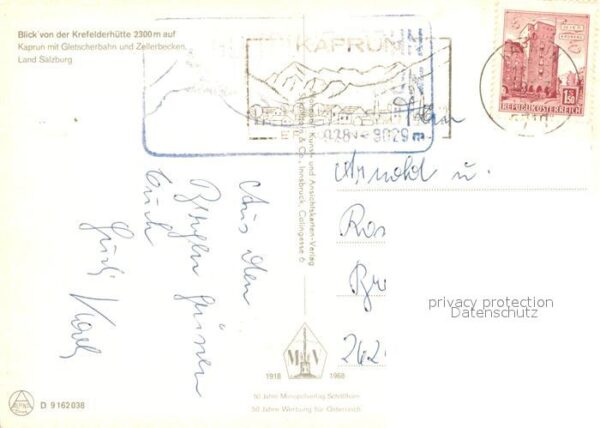 Blick von der Krefelderhütte 2300 m auf
Kaprun mit Gletscherbahn und Zellerbecken,
Land Salzburg
KAPRUN
028 9029
1.50
REPUBLIK ÖSTERREICH
Arnold u.
Ros
Br
262
Aus den
Bergen grüssen
Euch
Kunst- und Ansichtskarten-Verlag
& Co., Innsbruck, Colingasse 6
privacy protection
Datenschutz
M V
1918 1968
50 Jahre Minopolverlag Schöllhorn
50 Jahre Werbung für Österreich
D 9 162 038